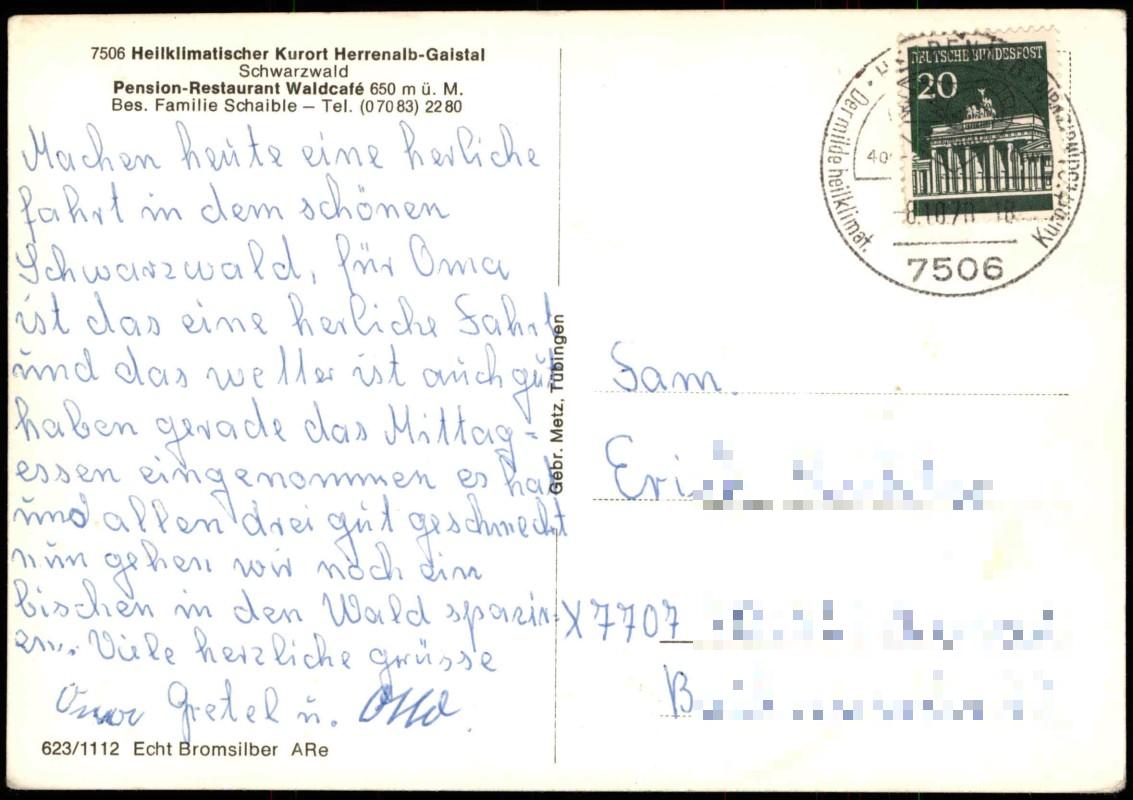 7506 Heilklimatischer Kurort Herrenalb-Gaistal
Schwarzwald
Pension-Restaurant Waldcafé 650 m ü. M.
Bes. Familie Schaible – Tel. (07083) 2280
Machen heute eine herliche
fahrt in dem schönen
Schwarzwald, für Oma
ist das eine herliche Fahrt
und das wetter ist auch gut
haben gerade das Mittag=
essen eingenommen es hat
und allen drei gut geschmeckt
nun gehen wir noch ein
bischen in den Wald spazir=
en. Viele herzliche grüsse
Oma Gretel u. Otto
623/1112 Echt Bromsilber ARe
Gebr. Metz, Tübingen
DEUTSCHE BUNDESPOST
20
Der milde heilklimat.
Kurort
8.10.70 18
7506
Fam.
Eri
X 7707
B